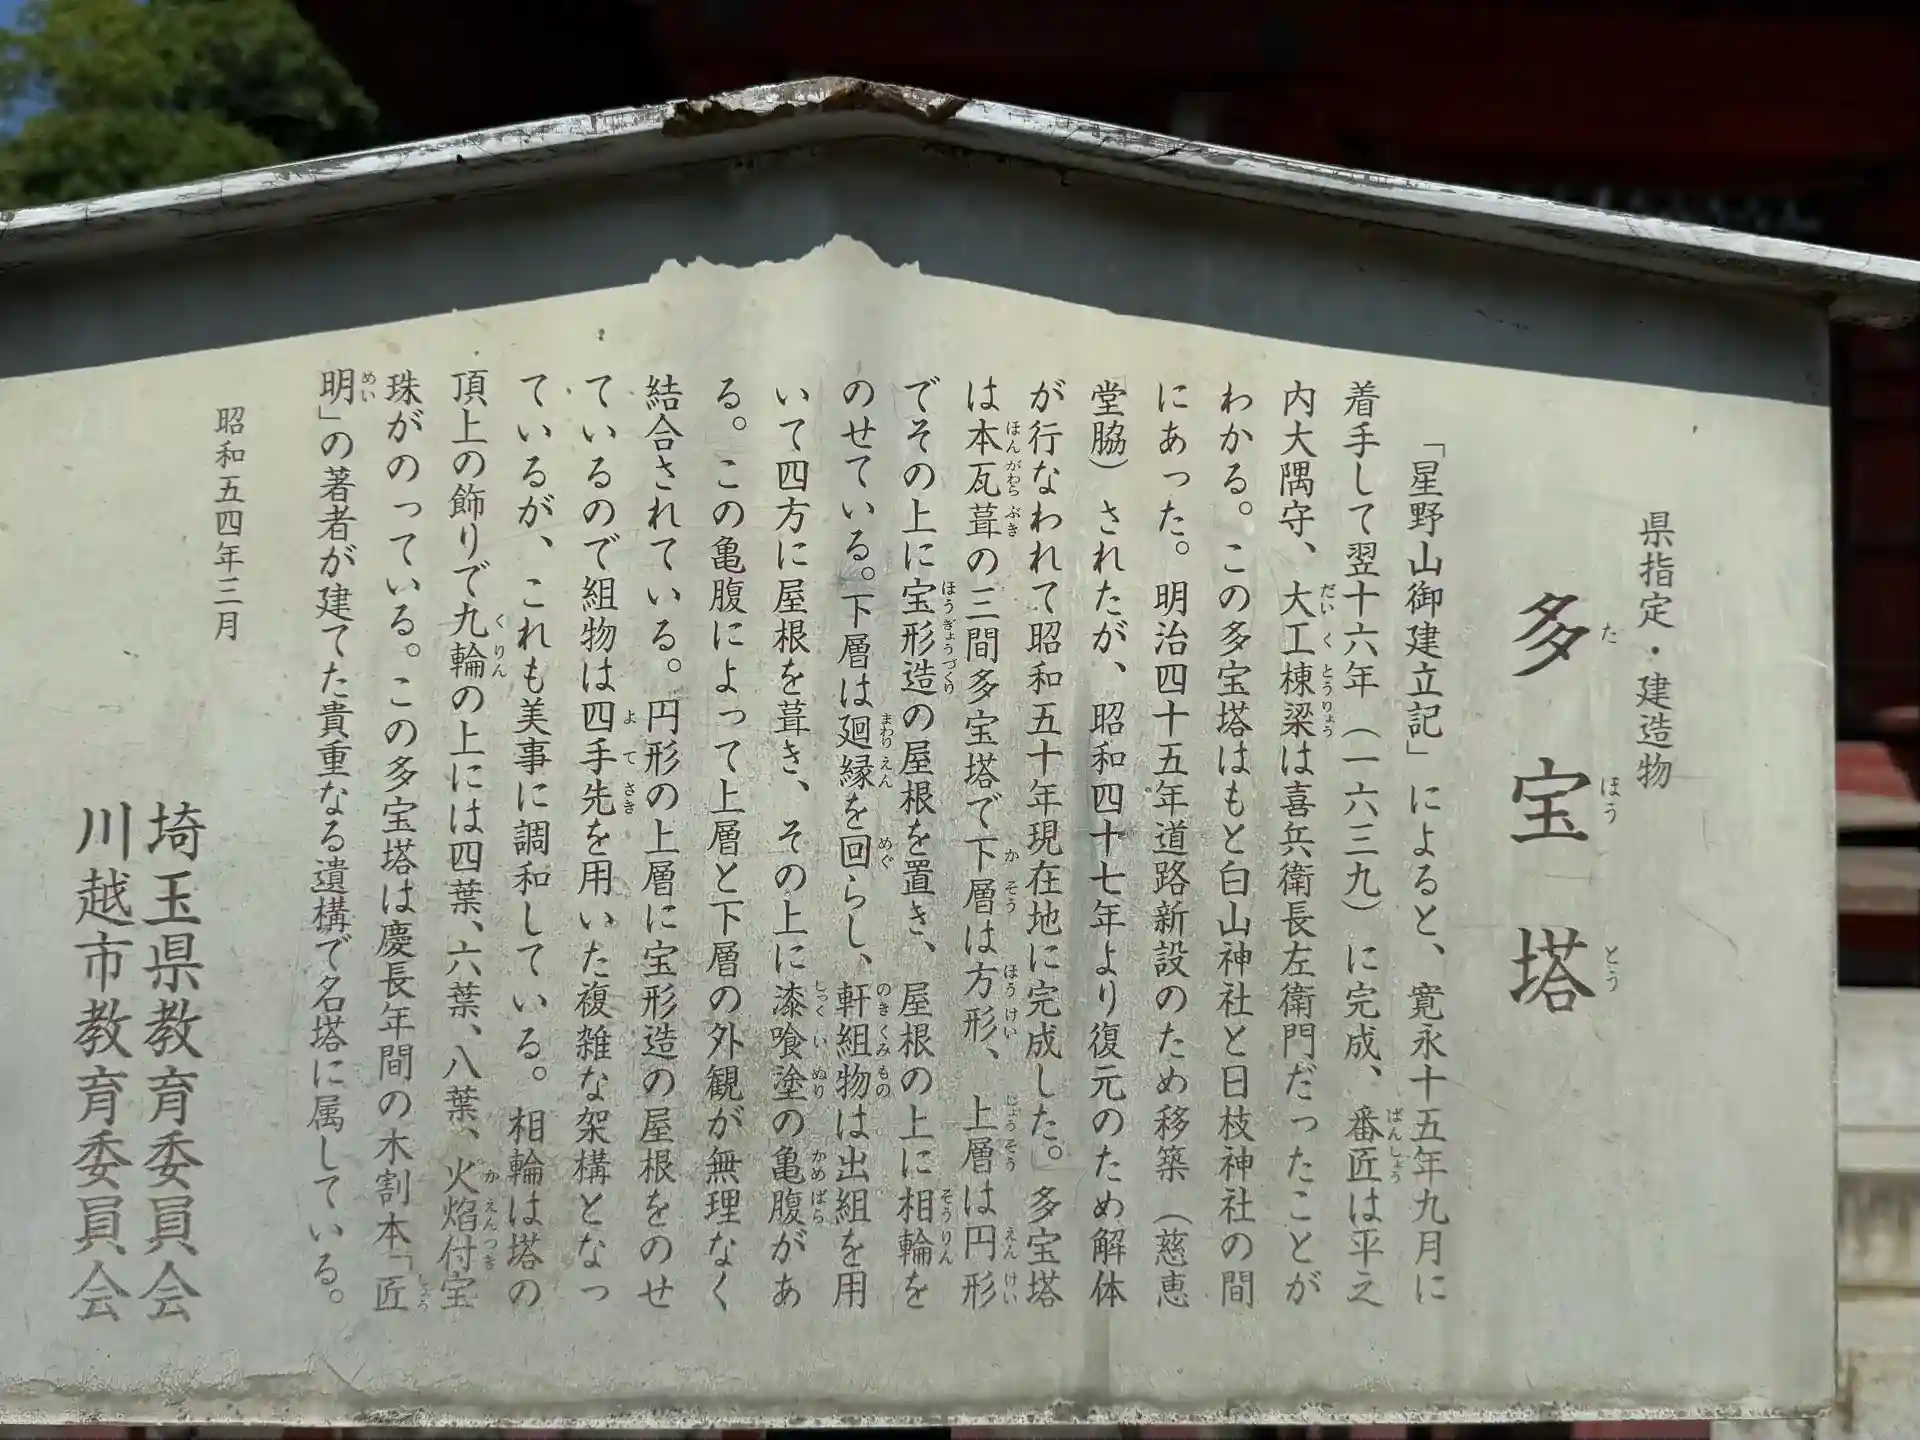 県指定・建造物
多宝塔
たほうとう
「星野山御建立記」によると、寛永十五年九月に
着手して翌十六年（一六三九）に完成、番匠は平之
ばんしょう
内大隅守、大工棟梁は喜兵衛長左衛門だったことが
だいくとうりょう
わかる。この多宝塔はもと白山神社と日枝神社の間
にあった。明治四十五年道路新設のため移築（慈恵
堂脇）されたが、昭和四十七年より復元のため解体
が行なわれて昭和五十年現在地に完成した。」多宝塔
は本瓦葺の三間多宝塔で下層は方形、上層は円形
ほんがわらぶき かそう ほうけい じょうそう えんけい
でその上に宝形造の屋根を置き、屋根の上に相輪を
ほうぎょうづくり そうりん
のせている。下層は廻縁を回らし、軒組物は出組を用
まわりえん めぐ のきくみもの
いて四方に屋根を葺き、その上に漆喰塗の亀腹があ
しっくいぬり かめばら
る。この亀腹によって上層と下層の外観が無理なく
結合されている。円形の上層に宝形造の屋根をのせ
ているので組物は四手先を用いた複雑な架構となっ
よてさき
ているが、これも美事に調和している。相輪は塔の
頂上の飾りで九輪の上には四葉、六葉、八葉、火焰付宝
くりん かえんつき
珠がのっている。この多宝塔は慶長年間の木割本「匠
しょう
明」の著者が建てた貴重なる遺構で名塔に属している。
めい
昭和五四年三月
埼玉県教育委員会
川越市教育委員会